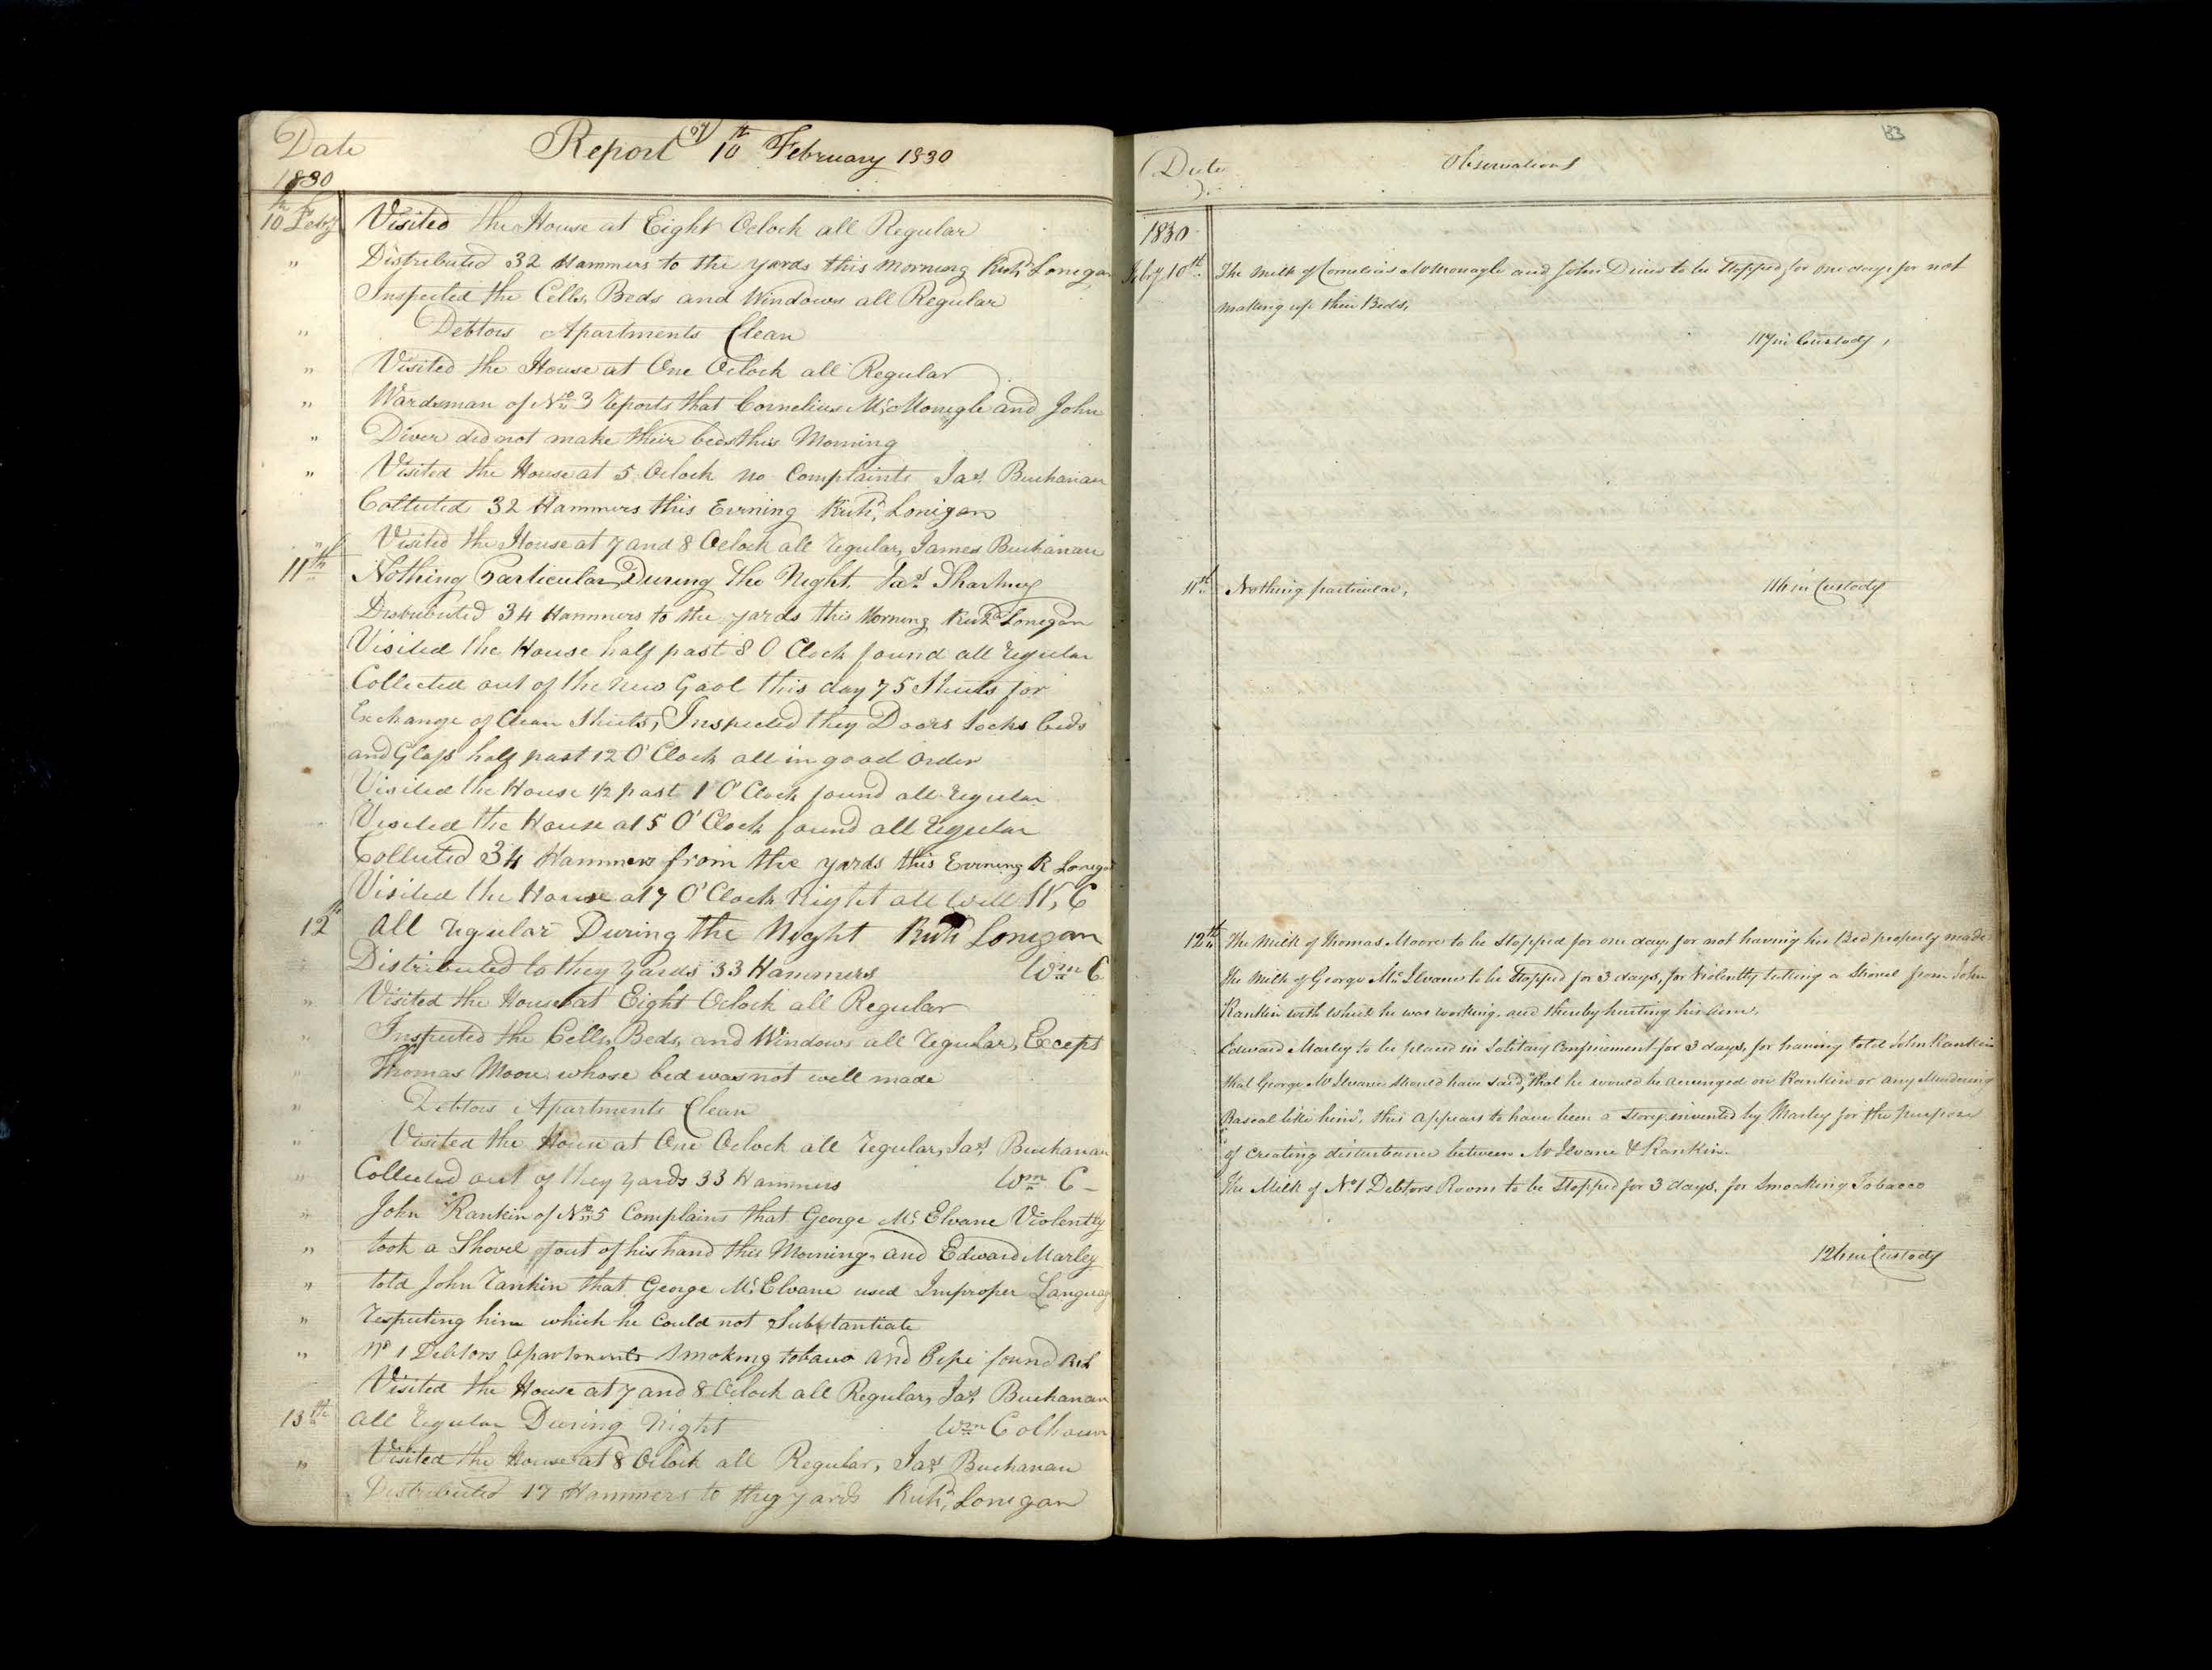 Date
1830
Report of 10th February 1830
10th Feby Visited the House at Eight Oclock all Regular
" Distributed 32 Hammers to the yards this morning Richd Lonigan
Inspected the Cells, Beds and Windows all Regular
" Debtors Apartments Clean
" Visited the House at One Oclock all Regular
" Wardsman of No 3 reports that Cornelius McMonigle and John
" Diver did not make their beds this Morning
" Visited the House at 5 Oclock no Complaints Jas Buchanan
Collected 32 Hammers this Evening Richd Lonigan
" Visited the House at 7 and 8 Oclock all regular, James Buchanan
11th Nothing Particular During the Night. Jas
Distributed 34 Hammers to the yards this Morning Richd Lonigan
Visited the House half past 8 O Clock found all regular
Collected out of the new Gaol this day 75 Sheets for
Exchange of Clean Sheets, Inspected they Doors locks beds
and Glass half past 12 O'Clock all in good order
Visited the House 1/2 past 1 O'Clock found all regular
Visited the House at 5 O'Clock found all regular
Collected 34 Hammers from the yards this Evening R Lonigan
Visited the House at 7 O'Clock Night all well W, C
12th all regular During the Night Richd Lonigan
Distributed to they yards 33 Hammers Wm C
" Visited the House at Eight Oclock all Regular
" Inspected the Cells, Beds, and Windows all regular, Except
" Thomas Moore whose bed was not well made
" Debtors Apartments Clean
" Visited the House at One Oclock all regular, Jas Buchanan
" Collected out of they yards 33 Hammers Wm C
" John Rankin of No 5 Complains that George McElvane Violently
" took a Shovel out of his hand this Morning, and Edward Marley
" told John Rankin that George McElvane used Improper Language
" respecting him which he could not Substantiate
" No 1 Debtors Apartments Smoking tobacco and Pipe found R L
Visited the House at 7 and 8 Oclock all Regular, Jas Buchanan
13th all regular During Night Wm Colhoun
" Visited the House at 8 Oclock all Regular, Jas Buchanan
Distributed 17 Hammers to they yards Richd Lonigan
83
Date
Observations
1830
Feby 10th The milk of Cornelius McMonagle and John Diver to be stopped for one day, for not
making up their Beds,
117 in Custody,
11th Nothing particular, 116 in Custody
12th The Milk of Thomas Moore to be stopped for one day, for not having his Bed properly made
The Milk of George McIlvane to be stopped for 3 days, for violently taking a Shovel from John
Rankin with which he was working, and thereby hurting his arm,
Edward Marley to be placed in Solitary Confinement for 3 days, for having told John Rankin
that George McIlvane should have said, "that he would be avenged on Rankin or any Murdering
Rascal like him", this appears to have been a story invented by Marley for the purpose
of creating disturbance between McIlvane & Rankin.
The Milk of No 1 Debtors Room to be stopped for 3 days, for Smoaking Tobacco
126 in Custody